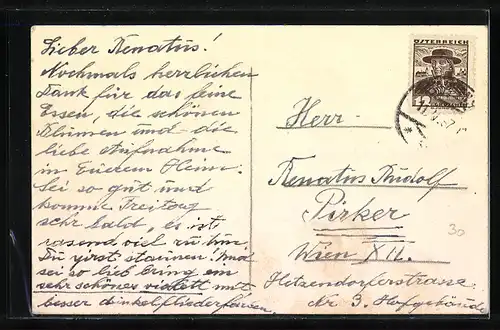 Lieber Renatus!
Nochmals herrlichen
Dank für das feine
Essen, die schönen
Blumen und die
liebe Aufnahme
in Euerem Heim.
Sei so gut und
komme Freitag
sehr bald, es ist
rasend viel zu tun.
Du wirst staunen. Und
sei so lieb bring ein
sehr schönes violett mit
besser dunkelfliederfarben.
ÖSTERREICH
12
Herr
Renatus Rudolf
Pirker
Wien XII.
Hetzendorferstrasse
Nr. 3. Hofgebäude
30